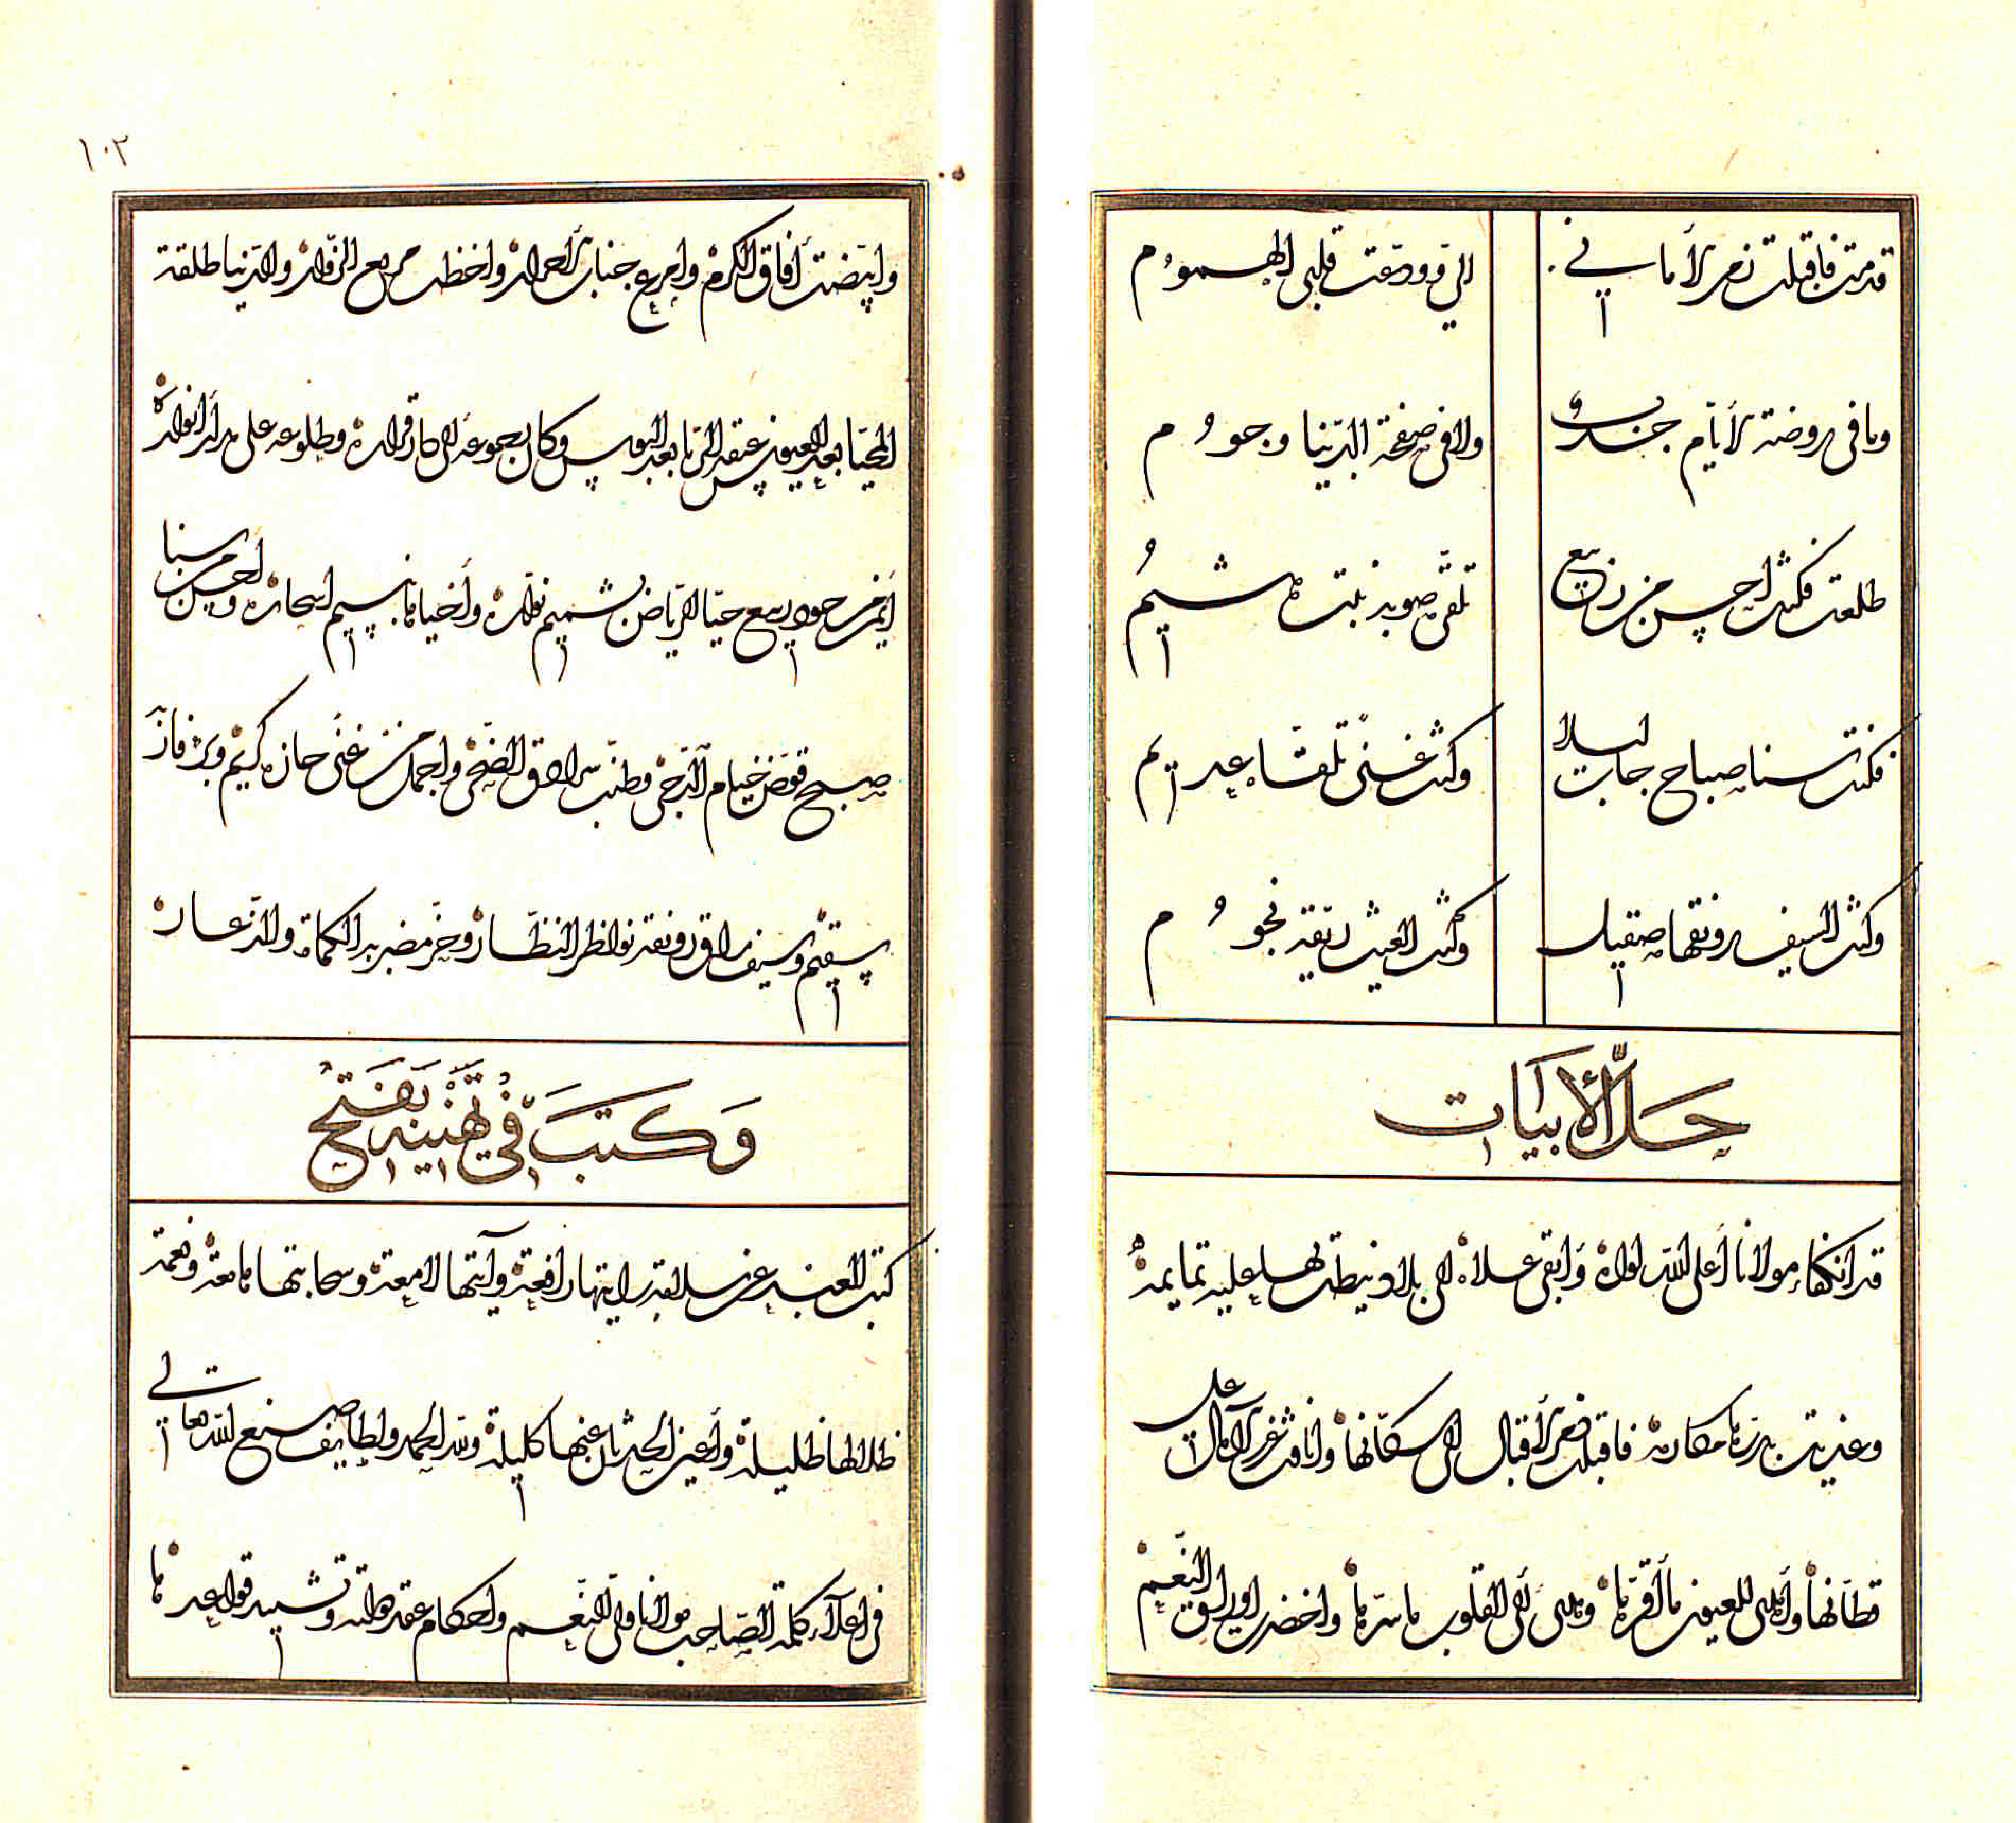 قدمت فاقبلت زهر الأماني الي وودعت قلبي الهموم
وما في روضة الأيام خدن ولا في صفحة الدنيا وجوم
طلعت فكنت احسن من ربيع تلقى صوبه نبت هشيم
فكنت سنا صباح جاب ليلا وكنت غنى تلقاه عديم
وكنت السيف رونقها صقيل وكنت الغيث ريقه نجوم
حل الأبيات
قد انكفاء مولانا أعلى الله لواه وأبقى علاه الى بلاد نيطت بها عليه تمايمه
وغذيت بدرتها مكارمه فاقبلت زهر الأقبال الى سكانها وانافت غرر الآمال على
قطانها وأهدى للعيون ما أقرها وهدى الى القلوب ما سرها واخضر اوراق النعيم
وابيضت أفاق الكرم وامرع جناب الأحرار واخظل مربع الزوار والدنيا طلقة
المحيا بعد العبوس عبقة الريا بعد البوس وكان بجوعه الى كار قراره وطلوعه على مدار انواره
أيمن من جود ربيع حيا الرياض بشميم نواره وأحياها بنسيم اسحاره وأحسن من سنا
صبح قوض خيام الدجى وطنب سرادق الضحى واجمل من غنى حازه كريم وبرء فاز به
سقيم وسيف راق رونقه نواظر النظار وحز مضربه الكماة والذعار
وكتب في تهنية بفتح
كتب العبد عن سلامة راياتها رافعة وآيتها لامعة وسحابتها هامعة ونعمة
ظلالها ظليلة وأعين الحدثان عنها كليلة ولله الحمد ولطايف صنع الله تعالى
في اعلاء كلمة الصاحب مولانا ولي النعم واحكام عقد دولته وتشييد قواعدها
١٠٢